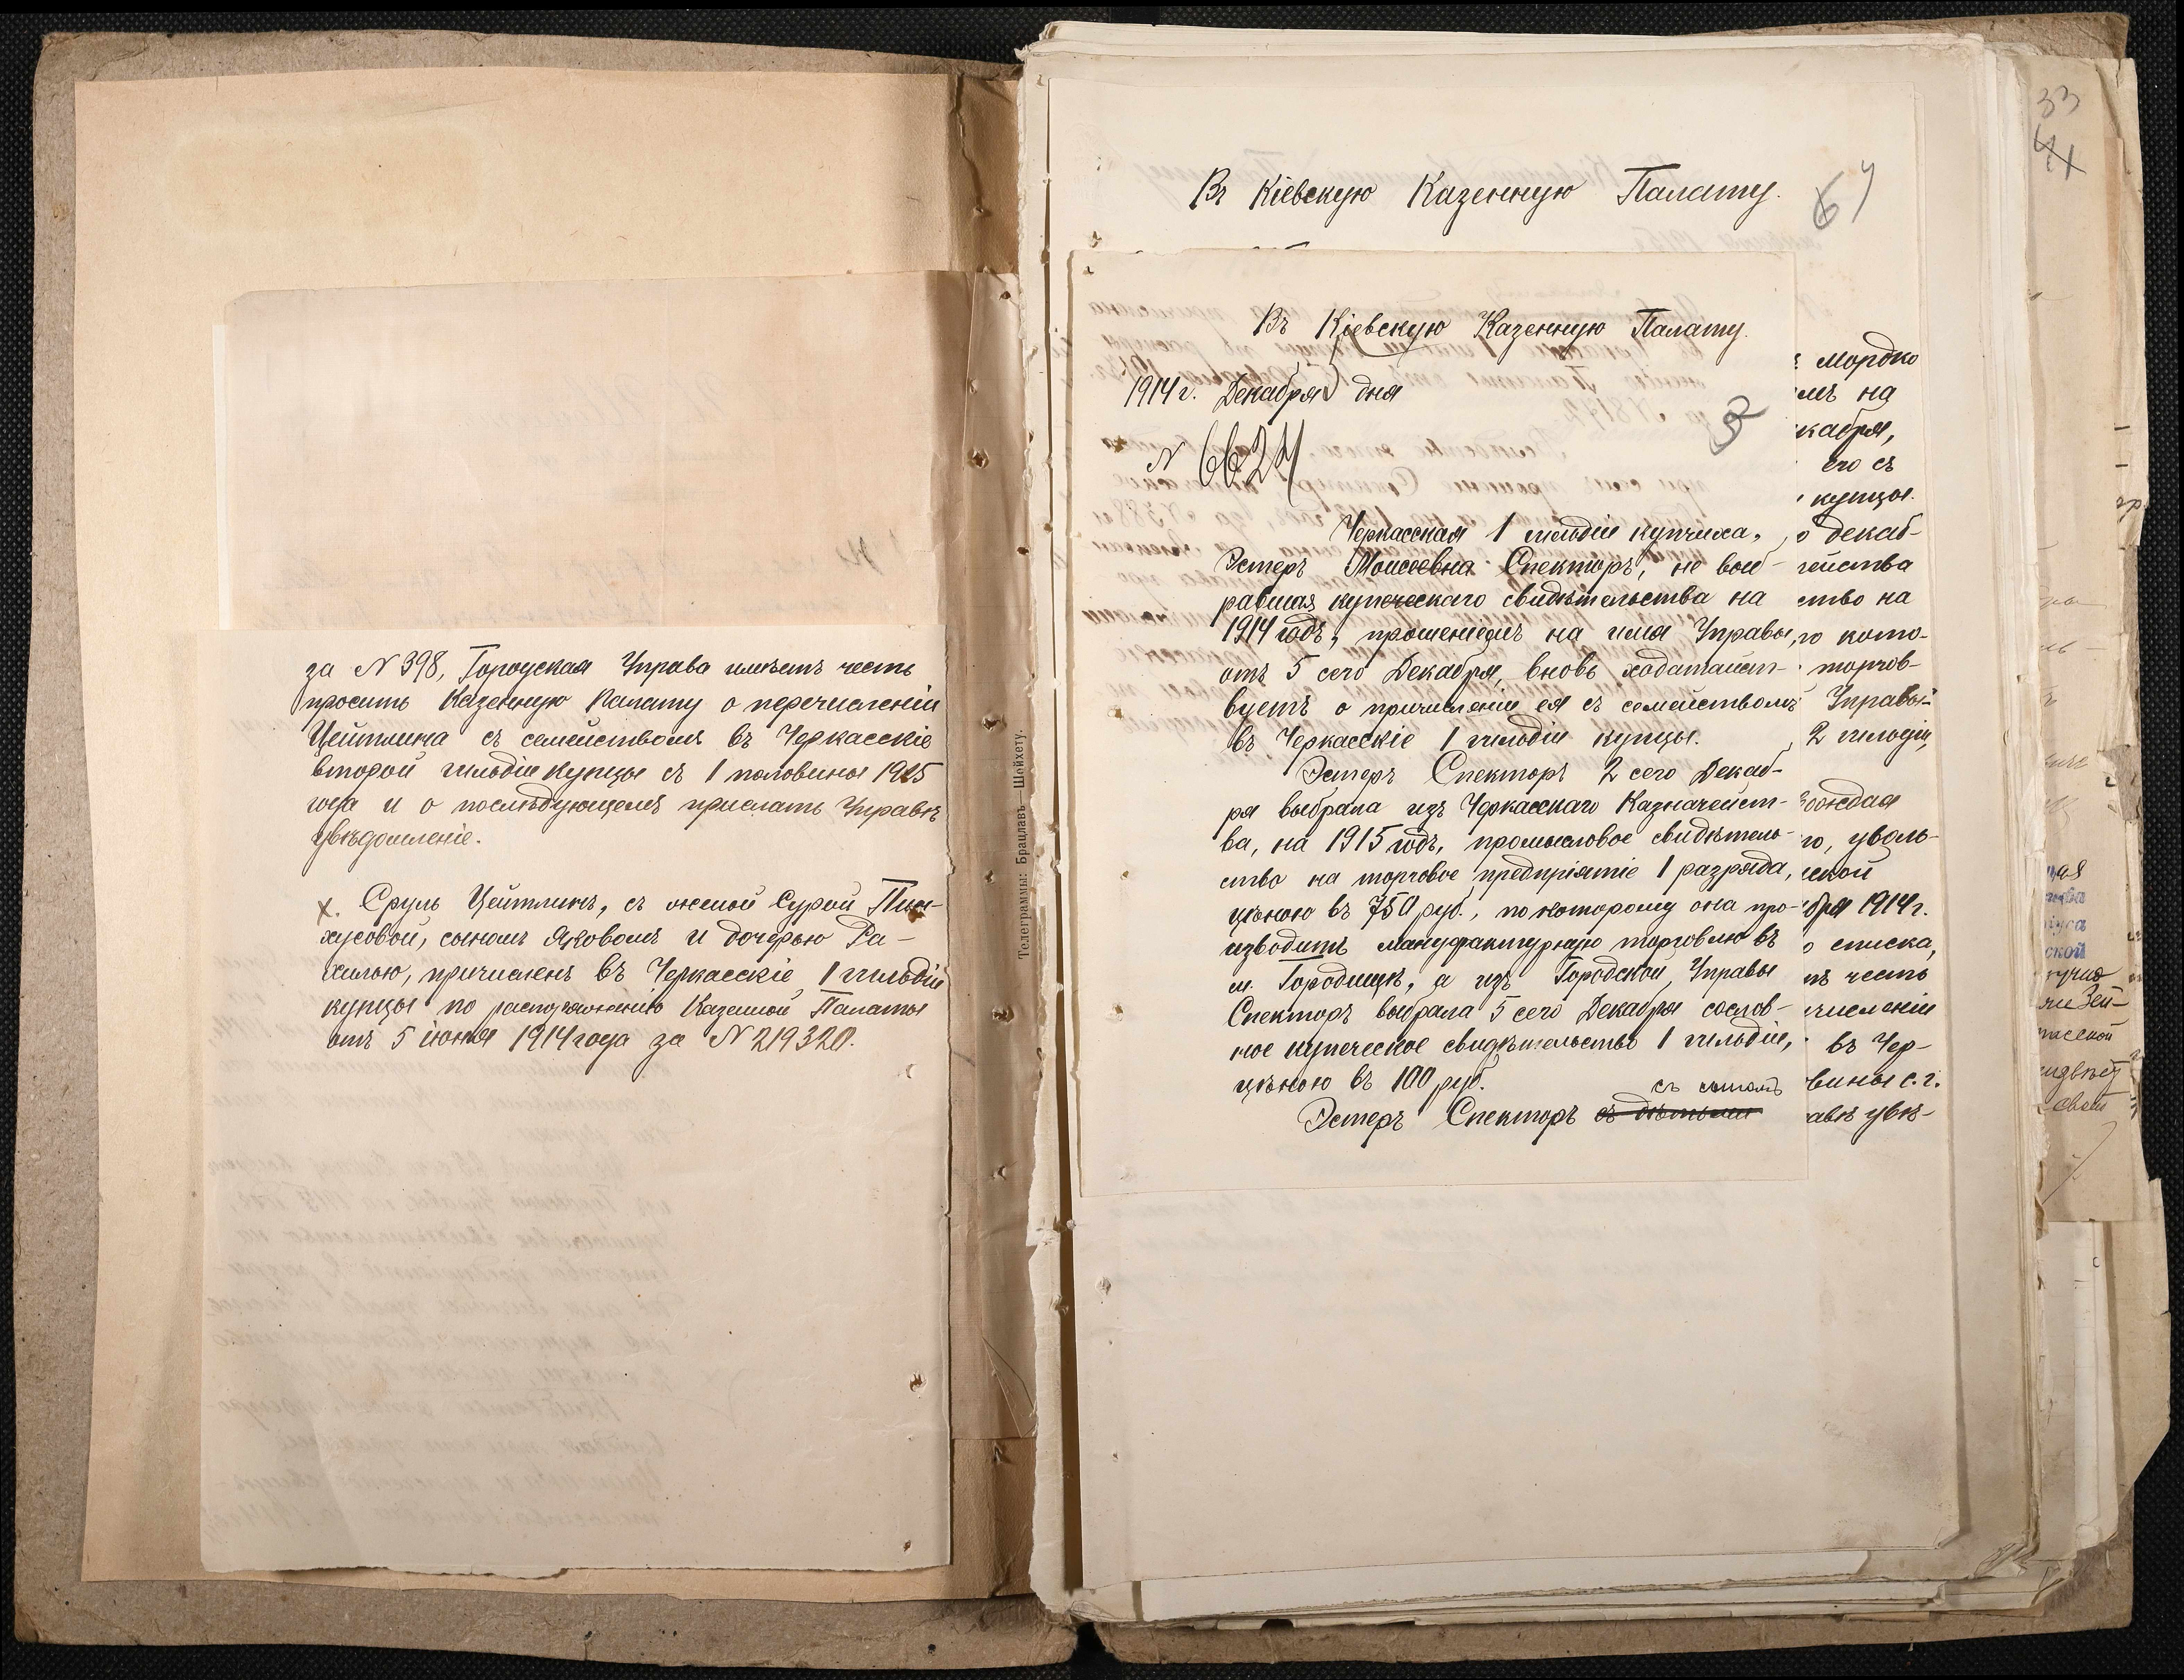 за № 398, Городская Управа имѣетъ честь
просить Казенную Палату о перечисленіи
Цейтлина съ семействомъ въ Черкасскіе
второй гильдіи купцы съ 1 половины 1915
года и о послѣдующемъ прислать Управѣ
увѣдомленіе.
х. Сруль Цейтлинъ, съ женой Сурой Пин-
хусовой, сыномъ Яковомъ и дочерью Ра-
хилью, причисленъ въ Черкасскіе 1 гильдіи
купцы по распоряженію Казенной Палаты
отъ 5 іюня 1914 года за № 219320.
Телеграммы: Брацлавъ Шейхету.
Въ Кіевскую Казенную Палату.
Въ Кіевскую Казенную Палату.
1914 г. Декабря дня
3
№ 6624
Черкасская 1 гильдіи купчиха,
Эстеръ Моисеевна Спекторъ, не выб-
равшая купеческаго свидѣтельства на
1914 годъ, прошеніемъ на имя Управы,
отъ 5 сего Декабря, вновь ходатайст-
вуетъ о причисленіи ея съ семействомъ
въ Черкасскіе 1 гильдіи купцы.
Эстеръ Спекторъ 2 сего Декаб-
ря выбрала изъ Черкасскаго Казначейст-
ва, на 1915 годъ, промысловое свидѣтель-
ство на торговое предпріятіе 1 разряда,
цѣною въ 750 руб., по которому она про-
изводитъ мануфактурную торговлю въ
м. Городищѣ, а изъ Городской Управы
Спекторъ выбрала 5 сего Декабря сослов-
ное купеческое свидѣтельство 1 гильдіи,
цѣною въ 100 руб.
съ сыномъ
Эстеръ Спекторъ съ дѣтьми
Мордко
емъ на
кабря,
его съ
купцы.
о декаб-
тейства
ство на
го кото-
торгов-
Управой
2 гильдіи,
вождая
го, уволь-
ской
бря 1914 г.
о списка,
тъ честь
численіи
въ Чер-
вины с.г.
авѣ увѣ-
33
41